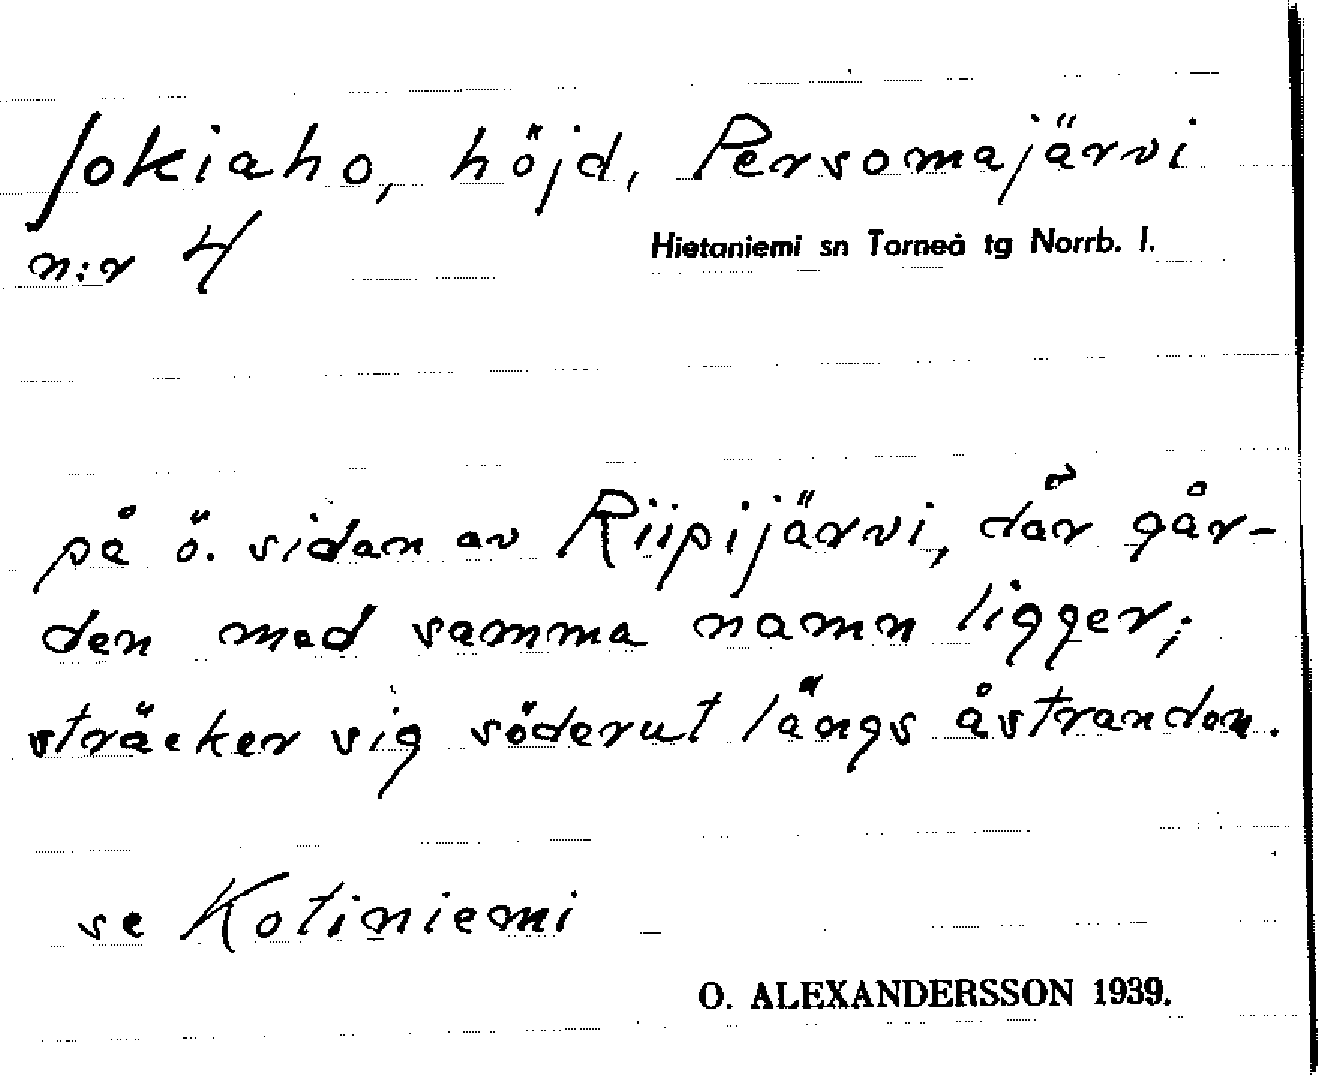 Jokiaho, höjd, Persomajärvi
n:r 4
Hietaniemi sn Torneå tg Norrb. l.
på ö. sidan av Riipijärvi, där går-
den med samma namn ligger;
sträcker sig söderut längs åstranden.
se Kotiniemi
O. ALEXANDERSSON 1939.